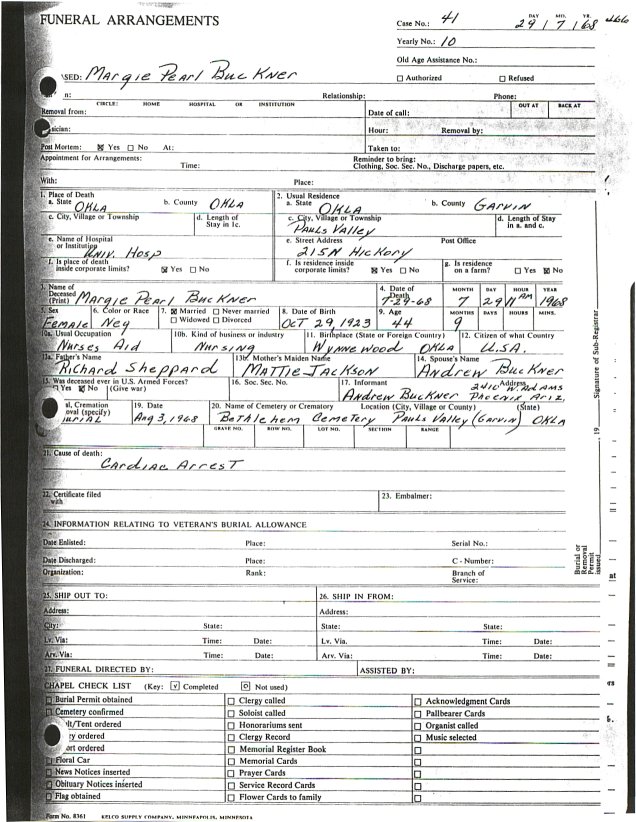 FUNERAL ARRANGEMENTS
Case No.: 41
DAY MO. YR.
29 / 7 / 68
Yearly No.: 10
Old Age Assistance No.:
☐ Authorized ☐ Refused
SED: Margie Pearl Buckner
n: Relationship: Phone:
CIRCLE: HOME HOSPITAL OR INSTITUTION OUT AT BACK AT
Removal from: Date of call:
sician: Hour: Removal by:
Post Mortem: ☒ Yes ☐ No At: Taken to:
Appointment for Arrangements: Time: Reminder to bring:
Clothing, Soc. Sec. No., Discharge papers, etc.
With: Place:
1. Place of Death 2. Usual Residence
a. State OKLA b. County OKLA a. State OKLA b. County GARVIN
c. City, Village or Township d. Length of Stay in 1c. c. City, Village or Township Pauls Valley d. Length of Stay in a. and c.
e. Name of Hospital or Institution Univ. Hosp e. Street Address 215 N Hickory Post Office
f. Is place of death inside corporate limits? ☒ Yes ☐ No f. Is residence inside corporate limits? ☒ Yes ☐ No g. Is residence on a farm? ☐ Yes ☒ No
3. Name of Deceased (Print) Margie Pearl Buckner 4. Date of Death 7-29-68 MONTH 7 DAY 29 HOUR 11 AM YEAR 1968
5. Sex Female 6. Color or Race Neg 7. ☒ Married ☐ Never married ☐ Widowed ☐ Divorced 8. Date of Birth Oct 29, 1923 9. Age 44 MONTHS 9 DAYS HOURS MINS.
10a. Usual Occupation Nurses Aid 10b. Kind of business or industry Nursing 11. Birthplace (State or Foreign Country) Wynnewood OKLA 12. Citizen of what Country U.S.A.
13a. Father's Name Richard Sheppard 13b. Mother's Maiden Name Mattie Jackson 14. Spouse's Name Andrew Buckner
15. Was deceased ever in U.S. Armed Forces? ☐ Yes ☒ No (Give war) 16. Soc. Sec. No. 17. Informant Andrew Buckner Address 2410 W. Adams Phoenix Ariz.
al, Cremation
oval (specify) Burial 19. Date Aug 3, 1968 20. Name of Cemetery or Crematory Bethlehem Cemetery Location (City, Village or County) Pauls Valley (Garvin) (State) OKLA
GRAVE NO. ROW NO. LOT NO. SECTION RANGE
21. Cause of death:
Cardiac Arrest
22. Certificate filed with 23. Embalmer:
24. INFORMATION RELATING TO VETERAN'S BURIAL ALLOWANCE
Date Enlisted: Place: Serial No.:
Date Discharged: Place: C - Number:
Organization: Rank: Branch of Service:
25. SHIP OUT TO: 26. SHIP IN FROM:
Address: Address:
City: State: State: State:
Lv. Via: Time: Date: Lv. Via. Time: Date:
Arv. Via: Time: Date: Arv. Via: Time: Date:
27. FUNERAL DIRECTED BY: ASSISTED BY:
CHAPEL CHECK LIST (Key: ☑ Completed ☐ Not used)
☐ Burial Permit obtained ☐ Clergy called ☐ Acknowledgment Cards
☐ Cemetery confirmed ☐ Soloist called ☐ Pallbearer Cards
ult/Tent ordered ☐ Honorariums sent ☐ Organist called
ry ordered ☐ Clergy Record ☐ Music selected
ort ordered ☐ Memorial Register Book ☐
☐ Floral Car ☐ Memorial Cards ☐
☐ News Notices inserted ☐ Prayer Cards ☐
☐ Obituary Notices inserted ☐ Service Record Cards ☐
☐ Flag obtained ☐ Flower Cards to family ☐
Form No. 8361 KELCO SUPPLY COMPANY, MINNEAPOLIS, MINNESOTA
Burial or Removal Permit issued
19
Signature of Sub-Registrar
at